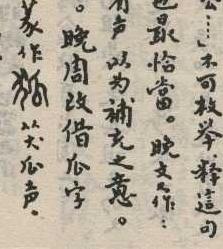 公……”不可枚举，释這句
也最恰當。晚文又作：
有声以为補充之意。
。晚周改借瓜字
篆作狐，从犬瓜声。